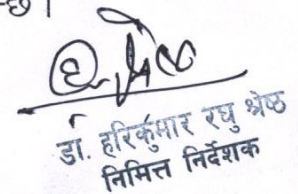 छ ।
डा. हरिकुमार रघु श्रेष्ठ
निमित्त निर्देशक